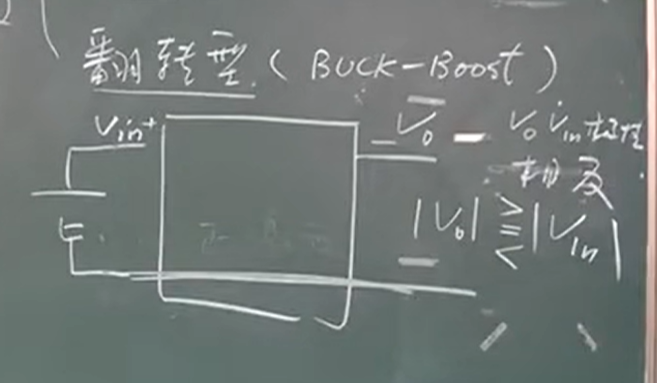 翻转型 (BUCK-Boost)
Vin+
- Vo
Vo Vin 极性
相反
|Vo| ≥< |Vin|